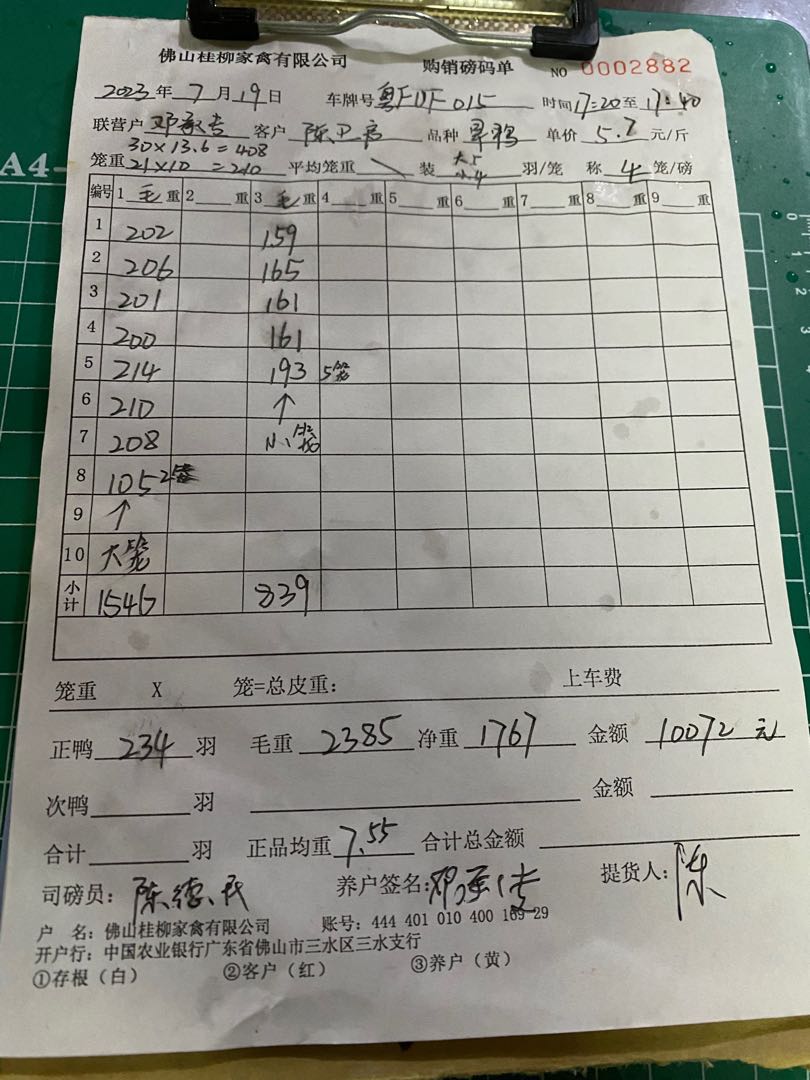 佛山桂柳家禽有限公司 购销磅码单 NO 0002882
2023年7月19日 车牌号粤FDF015 时间17:20至17:40
联营户 客户 陈卫 品种 单价5.7元/斤
30×13.6=408
笼重21×10=210 平均笼重 \ 装 大5 小4 羽/笼 称4笼/磅
编号 1毛重 2重 3毛重 4重 5重 6重 7重 8重 9重
1 202 159
2 206 165
3 201 161
4 200 161
5 214 193 5笼
6 210 ↑
7 208 小笼
8 105 2笼
9 ↑
10 大笼
小计 1546 839
笼重 X 笼=总皮重: 上车费
正鸭 234 羽 毛重 2385 净重 1767 金额 10072 元
次鸭 羽 金额
合计 羽 正品均重 7.55 合计总金额
司磅员: 陈德民 养户签名: 邓 提货人: 陈
户 名: 佛山桂柳家禽有限公司 账号: 444 401 010 400 169 29
开户行: 中国农业银行广东省佛山市三水区三水支行
①存根(白) ②客户(红) ③养户(黄)
A4
0 1 2 3